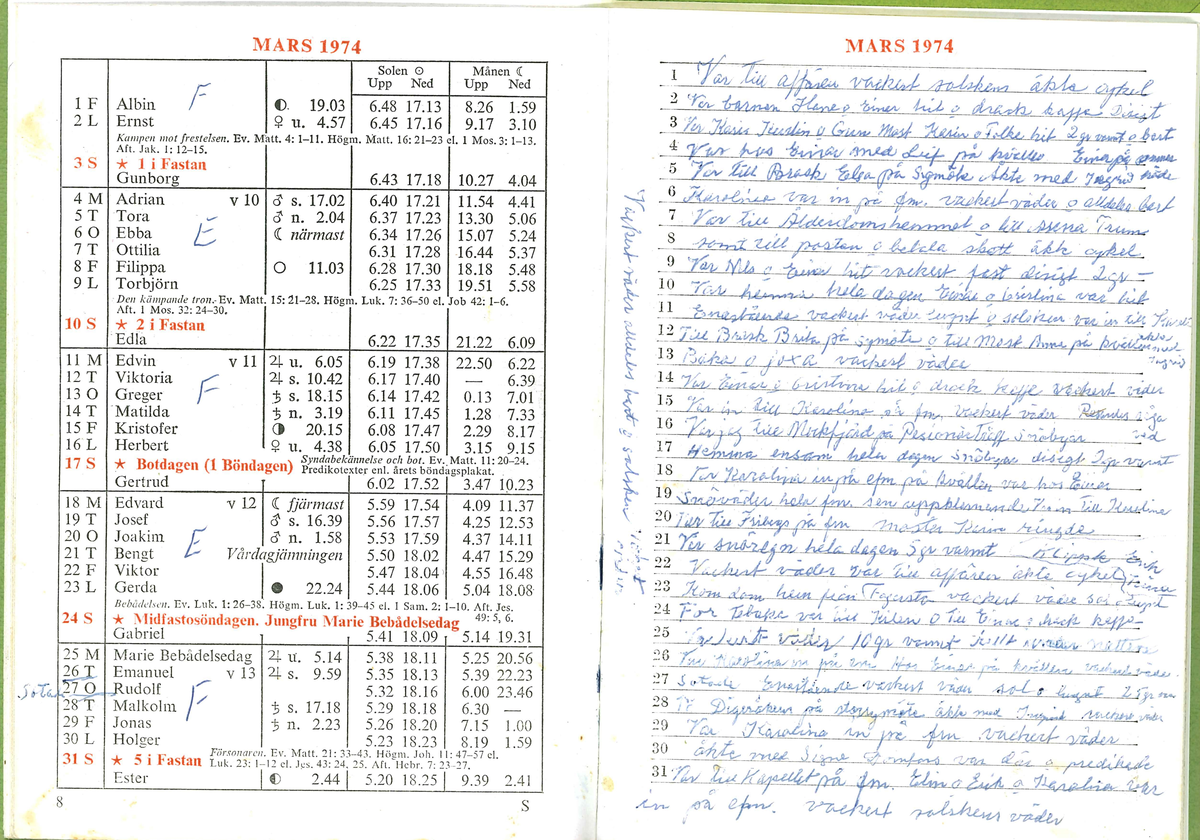 MARS 1974
Solen ☉ Månen ☾
Upp Ned Upp Ned
1 F Albin F ◐ 19.03 6.48 17.13 8.26 1.59
2 L Ernst ♀ u. 4.57 6.45 17.16 9.17 3.10
Kampen mot frestelsen. Ev. Matt. 4: 1–11. Högm. Matt. 16: 21–23 el. 1 Mos. 3: 1–13.
Aft. Jak. 1: 12–15.
3 S ★ 1 i Fastan
Gunborg 6.43 17.18 10.27 4.04
4 M Adrian v 10 ♂ s. 17.02 6.40 17.21 11.54 4.41
5 T Tora ♂ n. 2.04 6.37 17.23 13.30 5.06
6 O Ebba E ☾ närmast 6.34 17.26 15.07 5.24
7 T Ottilia 6.31 17.28 16.44 5.37
8 F Filippa ○ 11.03 6.28 17.30 18.18 5.48
9 L Torbjörn 6.25 17.33 19.51 5.58
Den kämpande tron. Ev. Matt. 15: 21–28. Högm. Luk. 7: 36–50 el. Job 42: 1–6.
Aft. 1 Mos. 32: 24–30.
10 S ★ 2 i Fastan
Edla 6.22 17.35 21.22 6.09
11 M Edvin v 11 ♃ u. 6.05 6.19 17.38 22.50 6.22
12 T Viktoria ♃ s. 10.42 6.17 17.40 — 6.39
13 O Greger F ♄ s. 18.15 6.14 17.42 0.13 7.01
14 T Matilda ♄ n. 3.19 6.11 17.45 1.28 7.33
15 F Kristofer ◑ 20.15 6.08 17.47 2.29 8.17
16 L Herbert ♀ u. 4.38 6.05 17.50 3.15 9.15
17 S ★ Botdagen (1 Böndagen) Syndabekännelse och bot. Ev. Matt. 11: 20–24.
Predikotexter enl. årets böndagsplakat.
Gertrud 6.02 17.52 3.47 10.23
18 M Edvard v 12 ☾ fjärmast 5.59 17.54 4.09 11.37
19 T Josef ♂ s. 16.39 5.56 17.57 4.25 12.53
20 O Joakim E ♂ n. 1.58 5.53 17.59 4.37 14.11
21 T Bengt Vårdagjämningen 5.50 18.02 4.47 15.29
22 F Viktor 5.47 18.04 4.55 16.48
23 L Gerda ● 22.24 5.44 18.06 5.04 18.08
Bebådelsen. Ev. Luk. 1: 26–38. Högm. Luk. 1: 39–45 el. 1 Sam. 2: 1–10. Aft. Jes.
49: 5, 6.
24 S ★ Midfastosöndagen. Jungfru Marie Bebådelsedag
Gabriel 5.41 18.09 5.14 19.31
25 M Marie Bebådelsedag ♃ u. 5.14 5.38 18.11 5.25 20.56
26 T Emanuel v 13 ♃ s. 9.59 5.35 18.13 5.39 22.23
27 O Rudolf F 5.32 18.16 6.00 23.46
28 T Malkolm ♄ s. 17.18 5.29 18.18 6.30 —
29 F Jonas ♄ n. 2.23 5.26 18.20 7.15 1.00
30 L Holger 5.23 18.23 8.19 1.59
31 S ★ 5 i Fastan Försonaren. Ev. Matt. 21: 33–43. Högm. Joh. 11: 47–57 el.
Luk. 23: 1–12 el. Jes. 43: 24, 25. Aft. Hebr. 7: 23–27.
Ester ◐ 2.44 5.20 18.25 9.39 2.41
8 S
MARS 1974
1 Var till affären vackert solsken åkte cykel
2 Var barnen o Einar hit o drack kaffe Disigt
3 Var Karin Kerstin o Most Karin o Folke hit 2 gr varmt o bart
4 Var hos Einar med Leif på kvällen Einar på
5 Var till Brask Elsa på Symöte Åkte med Ingrid
6 Karolina var in på fm. vackert väder o alldeles bart
7 Var till Ålderdomshemmet o till Trum
8 samt till posten o betala skatt åkte cykel
9 Var Nils o Einar hit vackert fast disigt 2 gr –
10 Var hemma hela dagen Einar o Cristina var hit
11 Enastående vackert väder lugnt o solsken var in till
12 Till Brask Brita på symöte o till Most Anna på kvällen åkte med Ingrid
13 Baka o joxa vackert väder
14 Var Einar o Cristina hit o drack kaffe vackert väder
15 Var in till Karolina på fm. vackert väder såga ved
16 Var jag till Mockfjärd på Pesionärsträff snöbyar
17 Hemma ensam hela dagen snöbyar disigt 2 gr varmt
18 Var Karolina in på efm på kvällen var hos Einar
19 Snöväder hela fm. sen uppklarnande till Karolina
20 Var till Fribergs på fm moster Karin ringde
21 Var snöregn hela dagen 5 gr varmt Erik
22 Vackert väder var till affären åkte cykel
23 Kom dom hem från Fagersta vackert väder sol o lugnt
24 For var till o Till Einar o drack kaffe
25 Vackert väder 10 gr varmt natten
26 Var Karolina in på em Hos Einar på kvällen vackert väder
27 Sotade Enastående vackert väder sol o lugnt 25 gr
28 Till Digeråkern på storsymöte åkte med Ingrid vackert väder
29 Var Karolina in på fm vackert väder
30 åkte med Signe var där o predikade
31 Var till Kapellet på fm. Elin o Erik o Karolina var
in på efm. vackert solskens väder
Vackert väder alldeles bart o solsken
Sotar